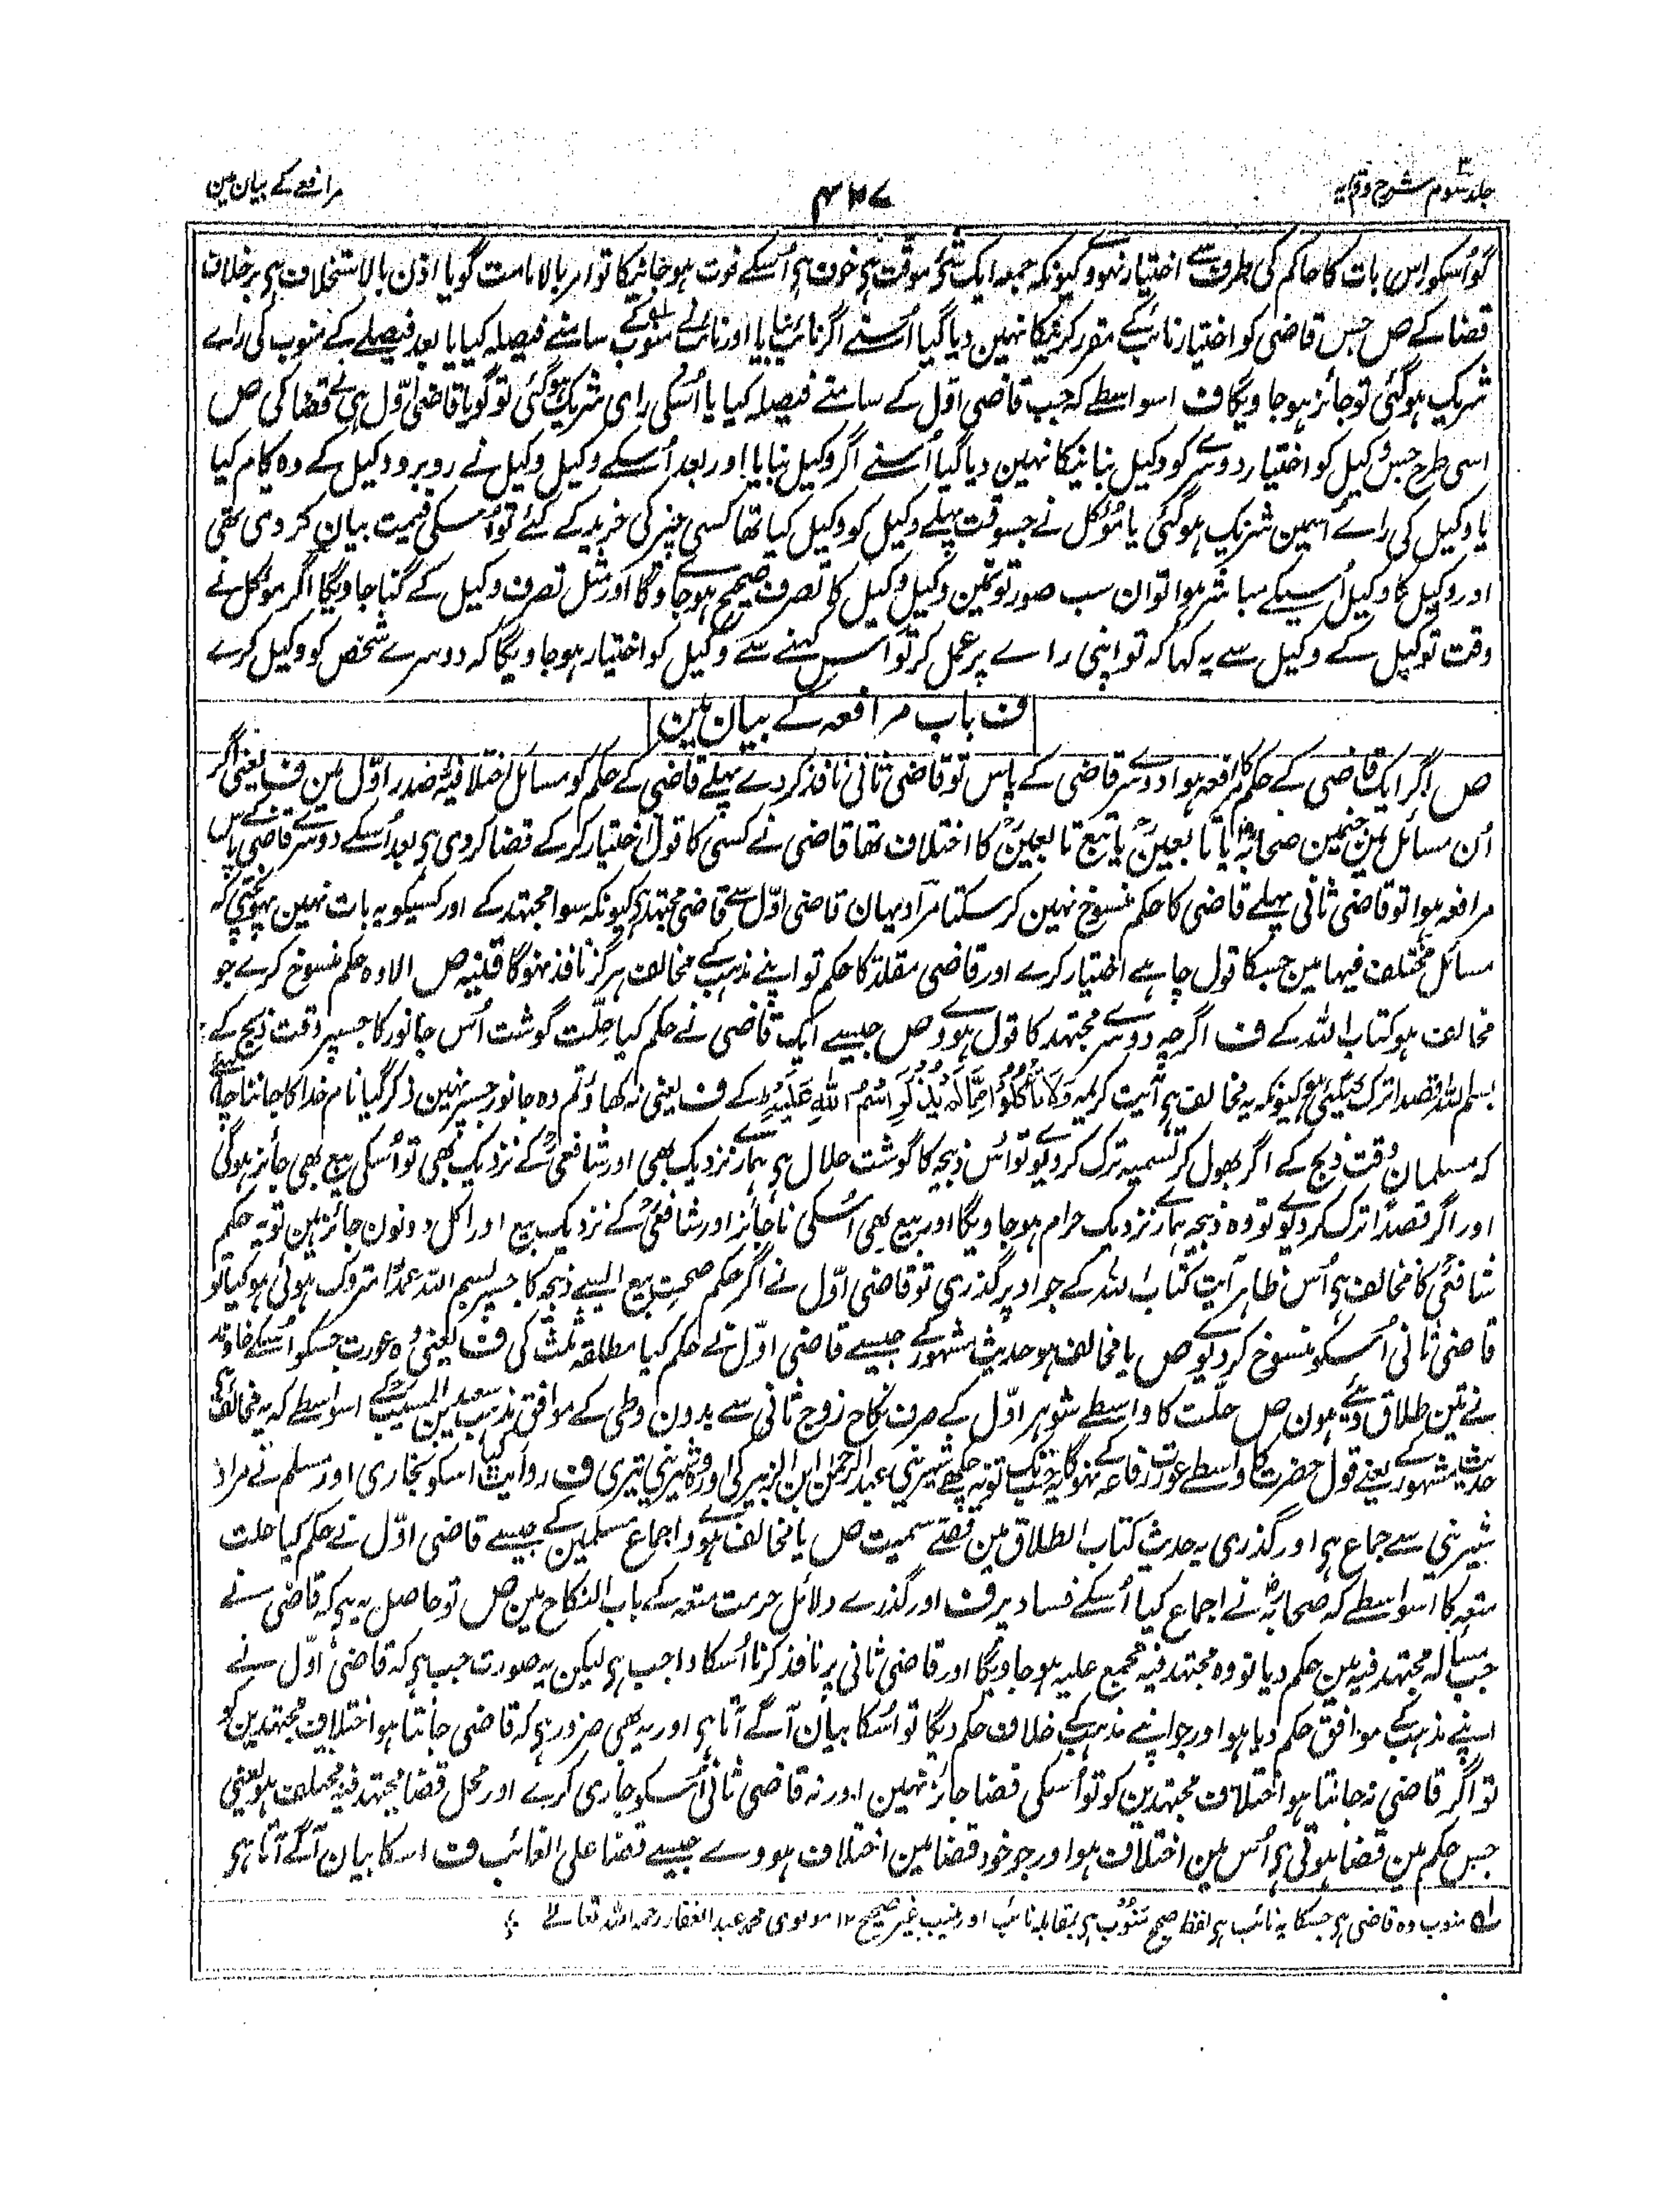 جلد سوم شرح وقایہ
۴۲۷
مرافعے کے بیان مین
گو اُسکو اس بات کا حاکم کی طرف سے اختیار نہووے کیونکہ جمعہ ایک شئ موقت ہی خوف ہی اُسکے فوت ہو جانیکا تو امر بالامامت گویا اذن بالاستخلاف ہی برخلاف
قضا کے ص جس قاضی کو اختیار نائب کے مقرر کرنیکا نہین دیا گیا اُسنے اگر نائب بنایا اور نائب نے منوب کے سامنے فیصلہ کیا یا بعد فیصلے کے منوب کی راے
شریک ہو گئی تو جائز ہو جاویگا ف اسواسطے کہ جب قاضی اول کے سامنے فیصلہ کیا یا اُسکی رای شریک ہو گئی تو گویا قاضی اوّل ہی نے قضا کی ص
اسی طرح جس وکیل کو اختیار دوسرے کو وکیل بنانیکا نہین دیا گیا اُسنے اگر وکیل بنایا اور بعد اُسکے وکیل وکیل نے روبرو وکیل کے وہ کام کیا
یا وکیل کی راے اُسمین شریک ہو گئی یا مؤکل نے جسوقت پہلے وکیل کو وکیل کیا تھا کسی چیز کی خرید کے لئے تو اُسکی قیمت بیان کر دی تھی
اور وکیل کا وکیل اُسکے مباشر ہوا تو ان سب صورتونمین وکیل وکیل کا تصرف صحیح ہو جاویگا اور مثل تصرف وکیل کے گنا جاویگا اگر موکل نے
وقت توکیل کے وکیل سے یہ کہا کہ تو اپنی راے پر عمل کر تو اس کہنے سے وکیل کو اختیار ہو جاویگا کہ دوسرے شخص کو وکیل کرے
ف باب مرافعہ کے بیان مین
ص اگر ایک قاضی کے حکم کا مرافعہ ہوا دوسرے قاضی کے پاس تو قاضی ثانی نافذ کردے پہلے قاضی کے حکم کو مسائل اختلافیہ صدر اوّل مین ف یعنی اگر
اُن مسائل مین جنمین صحابہؓ یا تابعینؒ یا تبع تابعینؒ کا اختلاف تھا قاضی نے کسی کا قول اختیار کرکے قضا کر دی ہی بعد اُسکے دوسرے قاضی کے پاس
مرافعہ ہوا تو قاضی ثانی پہلے قاضی کا حکم منسوخ نہین کر سکتا مراد یہان قاضی اوّل سے قاضی مجتہد ہی کیونکہ سوا مجتہد کے اور کسیکو یہ بات نہین پہونچتی کہ
مسائل مختلف فیہا مین جسکا قول چاہے اختیار کرے اور قاضی مقلد کا حکم تو اپنے مذہب کے مخالف ہرگز نافذ نہوگا قنیہ ص الا وہ حکم منسوخ کرے جو
مخالف ہو کتاب اللہ کے ف اگرچہ دوسرے مجتہد کا قول ہووے ص جیسے ایک قاضی نے حکم کیا حلّت گوشت اُس جانور کا جسپر وقت ذبح کے
بسم اللہ قصدا ترک کیگئی ہی کیونکہ یہ مخالف ہی آیت کریمہ وَلَا تَأْكُلُوْا مِمَّا لَمْ يُذْكَرِ اسْمُ اللّٰهِ عَلَيْهِ کے ف یعنی نہ کھاؤ تم وہ جانور جسپر نہین ذکر گیا نام خدا کا جاننا چاہیئے
کہ مسلمان وقت ذبح کے اگر بھول کر تسمیہ ترک کر دیوے تو اُس ذبیحہ کا گوشت حلال ہی ہمارے نزدیک بھی اور شافعیؒ کے نزدیک بھی تو اُسکی بیع بھی جائز ہوگی
اور اگر قصدًا ترک کر دیوے تو وہ ذبیحہ ہمارے نزدیک حرام ہو جاویگا اور بیع بھی اُسکی ناجائز اور شافعیؒ کے نزدیک بیع اور اکل دونون جائز ہین تو یہ حکم
شافعیؒ کا مخالف ہی اُس ظاہر آیت کتاب اللہ کے جو اوپر گذری تو قاضی اوّل نے اگر حکم صحت بیع ایسے ذبیحہ کا جسپر بسم اللہ عمدًا متروک ہوئی ہو کیا تو
قاضی ثانی اُسکو منسوخ کر دیوے ص یا مخالف ہو حدیث مشہور کے جیسے قاضی اوّل نے حکم کیا مطلقہ ثلث کی ف یعنی وہ عورت جسکو اُسکے خاوند
نے تین طلاق دیے ہون ص حلّت کا واسطے شوہر اوّل کے صرف نکاح زوج ثانی سے بدون وطی کے موافق مذہب سعید بن المسیبؒ کے اسواسطے کہ یہ مخالف ہی
حدیث مشہور کے یعنے قول حضرت کا واسطے عورت رفاعہ کے نہوگا یہ جبتک تو نہ چکھے شیرینی عبدالرحمٰن ابن الزبیر کی اور وہ شیرینی تیری ف روایت کیا اسکو بخاری اور مسلم نے مراد
شیرینی سے جماع ہی اور گذری یہ حدیث کتاب الطلاق مین قصے سمیت ص یا مخالف ہووے اجماع مسلمین کے جیسے قاضی اوّل نے حکم کیا حلت
متعہ کا اسواسطے کہ صحابہؓ نے اجماع کیا اُسکے فساد پر ف اور گذرے دلائل حرمت متعہ کے باب النکاح مین ص تو حاصل یہ ہی کہ قاضی نے
جب مسألہ مجتہد فیہ مین حکم دیا تو وہ مجتہد فیہ مجمع علیہ ہو جاویگا اور قاضی ثانی پر نافذ کرنا اُسکا واجب ہی لیکن یہ صورت جب ہی کہ قاضی اوّل نے
اپنے مذہب کے موافق حکم دیا ہو اور جو اپنے مذہب کے خلاف حکم دیگا تو اُسکا بیان آگے آتا ہی اور یہ بھی ضرور ہی کہ قاضی جانتا ہو اختلاف مجتہدین کو
تو اگر قاضی نہ جانتا ہو اختلاف مجتہدین کو تو اُسکی قضا جائز نہین اور نہ قاضی ثانی اُسکو جاری کرے اور محل قضا مجتہد فیہ مختلف ہو یعنی
جس حکم مین قضا ہوتی ہی اُس مین اختلاف ہو اور جو خود قضا مین اختلاف ہووے جیسے قضا علی الغائب ف اسکا بیان آگے آتا ہی
لہ منوب وہ قاضی ہی جسکا یہ نائب ہی لفظ صحیح مَنُوْب ہی بمقابلہ نائب اور منیب غیر صحیح ۱۲ مولوی محمد عبد الغفار رحمہ اللہ تعالے